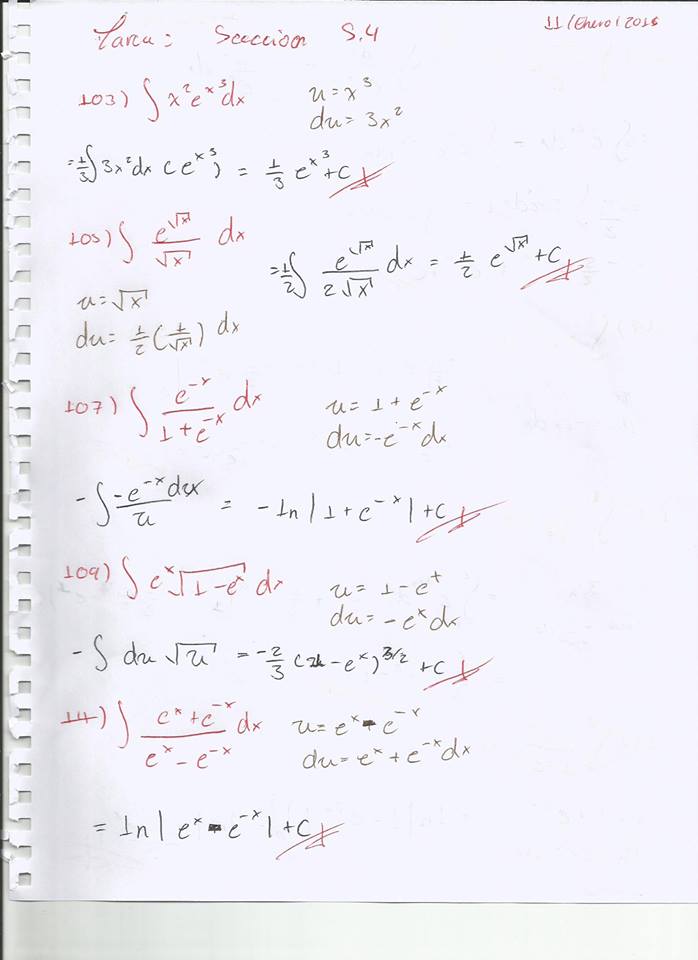 Tarea: Seccion 5.4 11/Enero/2018
103) ∫ x² e^(x³) dx u = x³
du = 3x²
= 1/3 ∫ 3x² dx (e^(x³)) = 1/3 e^(x³) + C
105) ∫ e^(√x) / √x dx
= 1/2 ∫ e^(√x) / (2√x) dx = 1/2 e^(√x) + C
u = √x
du = 1/2 (1/√x) dx
107) ∫ e^(-x) / (1 + e^(-x)) dx u = 1 + e^(-x)
du = -e^(-x) dx
- ∫ -e^(-x) dx / u = - ln |1 + e^(-x)| + C
109) ∫ e^x √(1 - e^x) dx u = 1 - e^x
du = -e^x dx
- ∫ du √u = -2/3 (1 - e^x)^(3/2) + C
111) ∫ (e^x + e^(-x)) / (e^x - e^(-x)) dx u = e^x - e^(-x)
du = e^x + e^(-x) dx
= ln | e^x - e^(-x) | + C